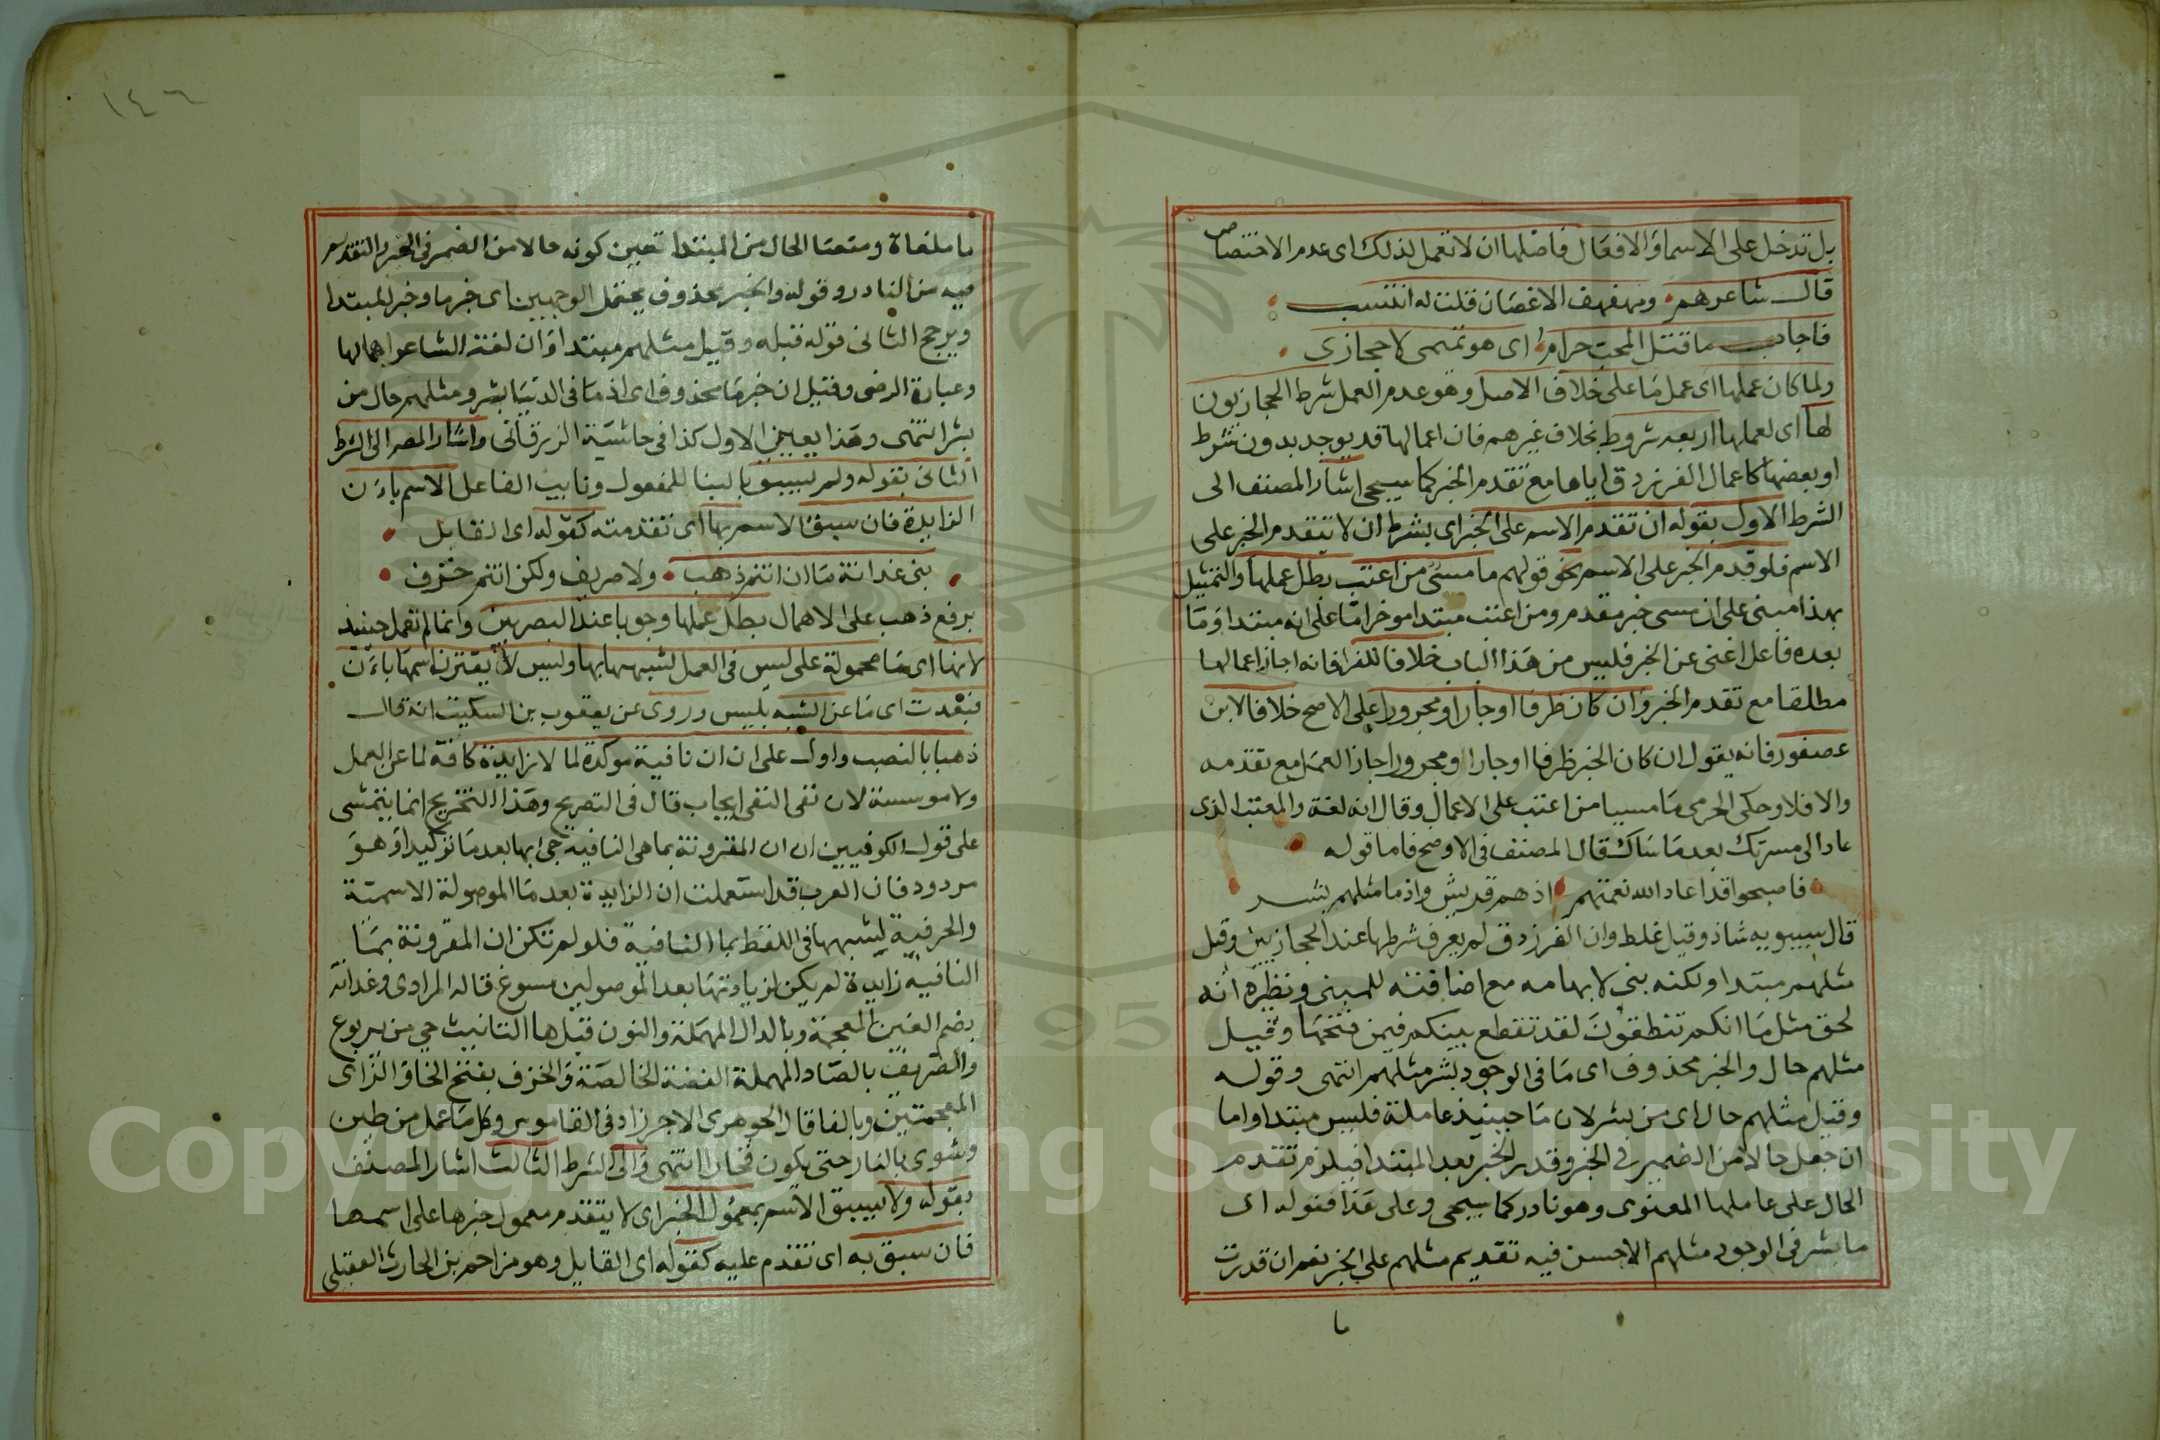 بل تدخل على الاسما والافعال فاصلها ان لا تعمل لذلك اى عدم الاختصاص
قال شاعرهم ومهفهف الاغصان قلت له انتسب
فاجاب ما قتل المحب حرام اى هو تميمى لا حجازى
ولما كان عملها اى عمل ما على خلاف الاصل وهو عدم العمل شرط الحجازيون
لها اى لعملها اربعه شروط بخلاف غيرهم فان اعمالها قد يوجد بدون شرط
او بعضها كاعمال الفرزدق اياها مع تقدم الخبر كما سيجى اشار المصنف الى
الشرط الاول بقوله ان تقدم الاسم على الخبر اى بشرط ان لا يتقدم الخبر على
الاسم فلو قدم الخبر على الاسم نحو قولهم ما مسئ من اعتب بطل عملها والتمثيل
بهذا مبنى على ان مسى خبر مقدم ومن اعتب مبتدا موخر اما على انه مبتدا وما
بعده فاعل اغنى عن الخبر فليس من هذا الباب خلافا للفرا فانه اجاز اعمالها
مطلقا مع تقدم الخبر وان كان ظرفا او جارا ومجرورا على الاصح خلافا لابن
عصفور فانه يقول ان كان الخبر ظرفا او جارا ومجرورا جاز العمل مع تقدمه
والا فلا وحكى الجرمى ما مسيا من اعتب على الاعمال وقال انه لغة والمعتب الذى
عاد الى مسرتك بعد ما ساك قال المصنف فى الاوضح فاما قوله
فاصبحوا قد اعاد الله نعمتهم اذ هم قريش واذ ما مثلهم بشر
قال سيبويه شاذ وقيل غلط وان الفرزدق لم يعرف شرطها عند الحجازيين وقيل
مثلهم مبتدا ولكنه بنى لابهامه مع اضافته للمبنى ونظيره انه
لحق مثل ما انكم تنطقون لقد تقطع بينكم فيمن فتحها وقيل
مثلهم حال والخبر محذوف اى ما فى الوجود بشر مثلهم انتهى وقوله
وقيل مثلهم حال اى من بشر لان ما حينيذ عاملة فليس مبتدا واما
ان جعل حالا من الضمير فى الخبر وقدر الخبر بعد المبتدا فيلزم تقدم
الحال على عاملها المعنوى وهو نادر كما سيجى وعلى هذا فقوله اى
ما بشر فى الوجود مثلهم الاحسن فيه تقديم مثلهم على الخبر نعم ان قدرت
ما
١٤٦
ما ملغاة ومنعنا الحال من المبتدا تعين كونه حالا من الضمر فى الخبر والتقدم
فيه من النادر وقوله والخبر محذوف يحتمل الوجهين اى خبرها وخبر المبتدا
ويرجح الثانى قوله قبله وقيل مثلهم مبتدا وان لغة الشاعر اهمالها
وعبارة الرضى وقيل ان خبرها محذوف اى اذ ما فى الدنيا بشر ومثلهم حال من
بشر انتهى وهذا يعين الاول كذا فى حاشية الزرقانى واشار المص الى الشرط
الثانى بقوله ولم يسبق بالبنا للمفعول ونايب الفاعل الاسم بان
الزايدة فان سبق الاسم بها اى تقدمته كقوله اى القايل
بنى غدانة ما ان انتم ذهب ولا صريف ولكن انتم خزف
برفع ذهب على الاهمال بطل عملها وجوبا عند البصريين وانما لم تعمل حينيذ
لانها اى ما محمولة على ليس فى العمل لشبهها بها وليس لا يقترن اسمها بان
فبعدت اى ما عن الشبه بليس وروى عن يعقوب بن السكيت انه قال
ذهبا بالنصب واول على ان ان نافية موكدة لما لا زايدة كافة لما عن العمل
ولا موسسة لان نفى النفى ايجاب قال فى التصريح وهذا التخريج انما يتمشى
على قول الكوفيين ان ان المقرونة بما هى النافية جى بها بعد ما توكيدا وهو
مردود فان العرب قد استعملت ان الزايدة بعد ما الموصولة الاسمية
والحرفية لشبهها فى اللفظ بما النافية فلو لم تكن ان المقرونة بما
النافية زايدة لم يكن لزيادتها بعد الموصولين مسوغ قاله المرادى وغدانة
بضم الغين المعجمة وبالدال المهملة والنون قبل ها التانيث حى من يربوع
والصريف بالصاد المهملة الفضة الخالصة والخزف بفتح الخا والزاى
المعجمتين وبالفا قال الجوهرى الاجر زاد فى القاموس وكل ما عمل من طين
وشوى بالنار حتى يكون فخارا انتهى والى الشرط الثالث اشار المصنف
بقوله ولا يسبق الاسم بمعمول الخبر اى لا يتقدم معمول خبرها على اسمها
فان سبق به اى تقدم عليه كقوله اى القايل وهو مزاحم بن الحارث العقيلى
Copyright © King Saud University